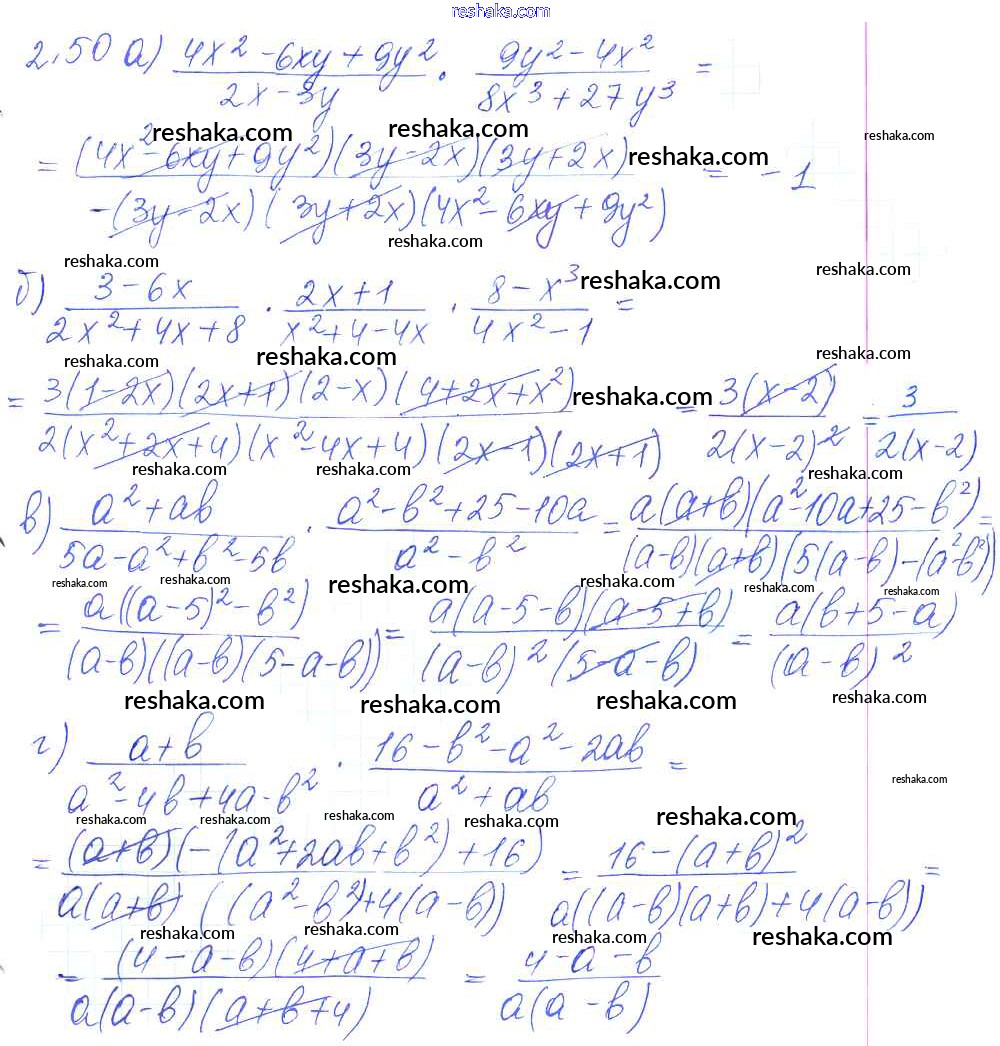 reshaka.com
2.50 а) (4x² - 6xy + 9y²)/(2x - 3y) · (9y² - 4x²)/(8x³ + 27y³) =
reshaka.com reshaka.com reshaka.com
= ((4x² - 6xy + 9y²)(3y - 2x)(3y + 2x))/(-(3y - 2x)(3y + 2x)(4x² - 6xy + 9y²)) = -1
reshaka.com
reshaka.com
reshaka.com reshaka.com
б) (3 - 6x)/(2x² + 4x + 8) · (2x + 1)/(x² + 4 - 4x) · (8 - x³)/(4x² - 1) =
reshaka.com
reshaka.com reshaka.com reshaka.com
= (3(1 - 2x)(2x + 1)(2 - x)(4 + 2x + x²))/(2(x² + 2x + 4)(x² - 4x + 4)(2x - 1)(2x + 1)) = (3(x - 2))/(2(x - 2)²) = 3/(2(x - 2))
reshaka.com
reshaka.com reshaka.com reshaka.com
в) (a² + ab)/(5a - a² + b² - 5b) · (a² - b² + 25 - 10a)/(a² - b²) = (a(a + b)(a² - 10a + 25 - b²))/((a - b)(a + b)(5(a - b) - (a² - b²))) =
reshaka.com reshaka.com reshaka.com reshaka.com reshaka.com
= (a((a - 5)² - b²))/((a - b)((a - b)(5 - a - b))) = (a(a - 5 - b)(a - 5 + b))/((a - b)²(5 - a - b)) = (a(b + 5 - a))/((a - b)²)
reshaka.com reshaka.com reshaka.com reshaka.com
г) (a + b)/(a² - 4b + 4a - b²) · (16 - b² - a² - 2ab)/(a² + ab) =
reshaka.com
reshaka.com reshaka.com reshaka.com reshaka.com reshaka.com
= ((a + b)(-(a² + 2ab + b²) + 16))/(a(a + b)((a² - b²) + 4(a - b))) = (16 - (a + b)²)/(a((a - b)(a + b) + 4(a - b))) =
reshaka.com reshaka.com reshaka.com reshaka.com
= ((4 - a - b)(4 + a + b))/(a(a - b)(a + b + 4)) = (4 - a - b)/(a(a - b))